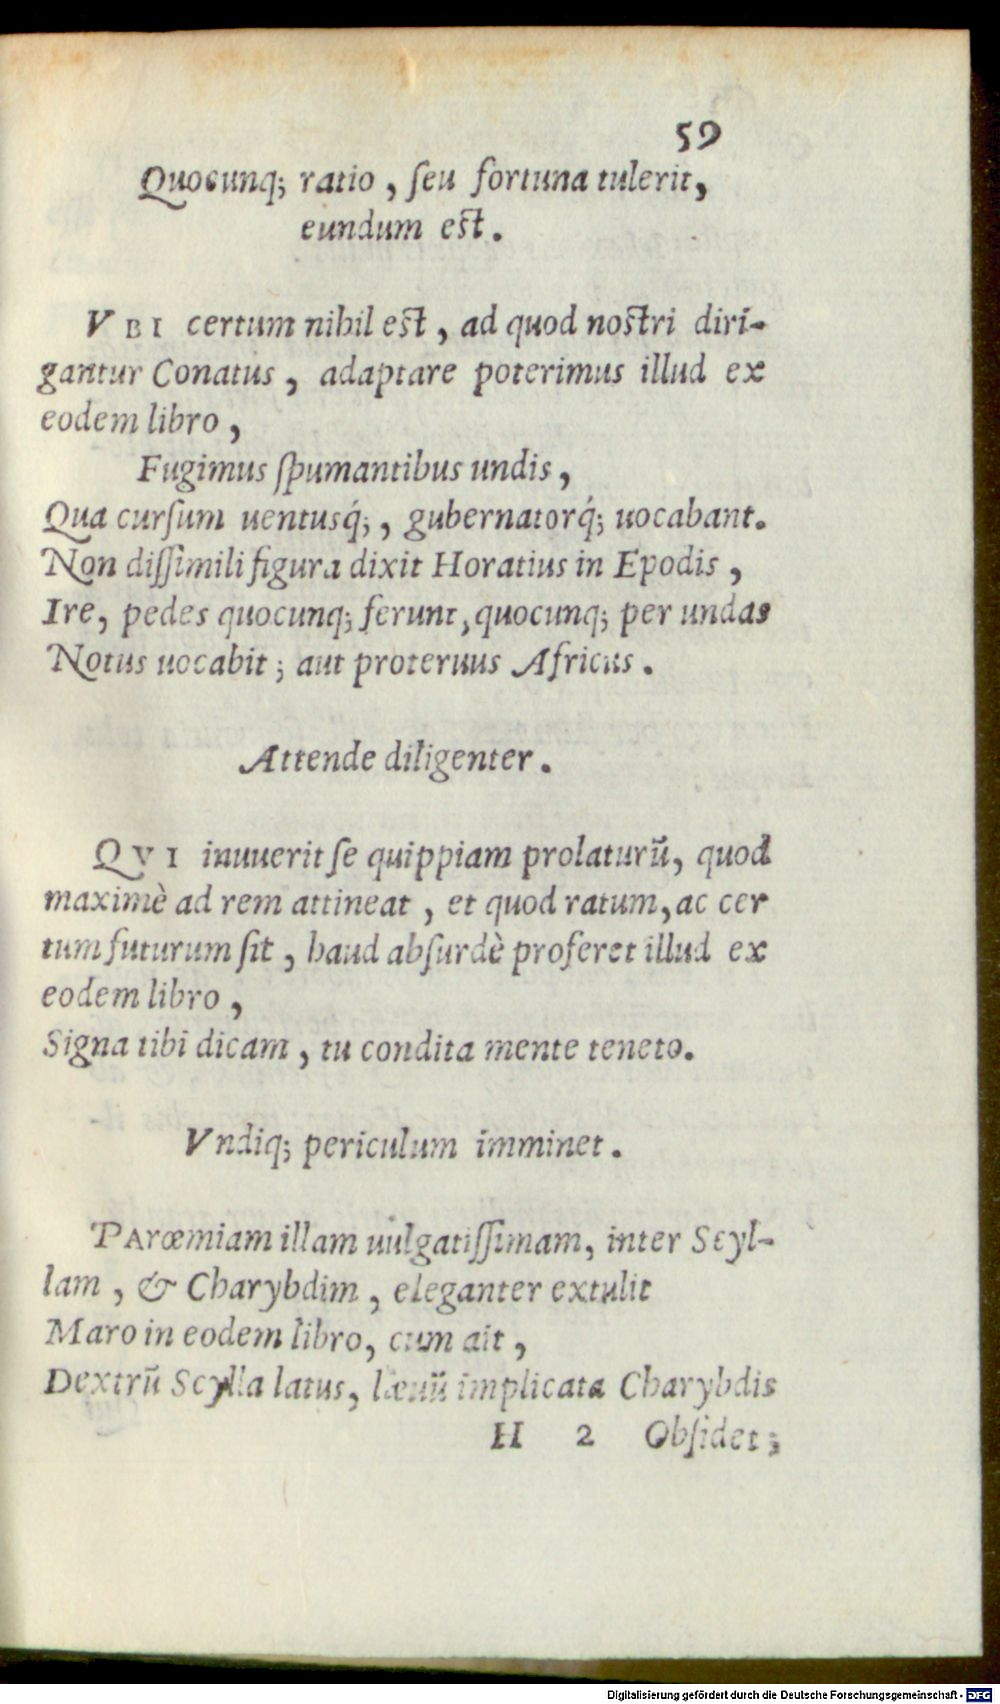 59
Quocunq; ratio, ſeu fortuna tulerit,
eundum eſt.
VBI certum nihil eſt, ad quod noſtri diri-
gantur Conatus, adaptare poterimus illud ex
eodem libro,
Fugimus ſpumantibus undis,
Qua curſum uentusq́;, gubernatorq́; uocabant.
Non diſſimili figura dixit Horatius in Epodis,
Ire, pedes quocunq; ferunt, quocunq; per undas
Notus uocabit; aut proteruus Africus.
Attende diligenter.
QVI inuuerit ſe quippiam prolaturũ, quod
maximè ad rem attineat, et quod ratum, ac cer
tum futurum ſit, haud abſurdè proferet illud ex
eodem libro,
Signa tibi dicam, tu condita mente teneto.
Vndiq; periculum imminet.
PARœmiam illam uulgatiſſimam, inter Scyl-
lam, & Charybdim, eleganter extulit
Maro in eodem libro, cum ait,
Dextrũ Scylla latus, læuũ implicata Charybdis
H 2 Obſidet;
Digitalisierung gefördert durch die Deutsche Forschungsgemeinschaft - DFG